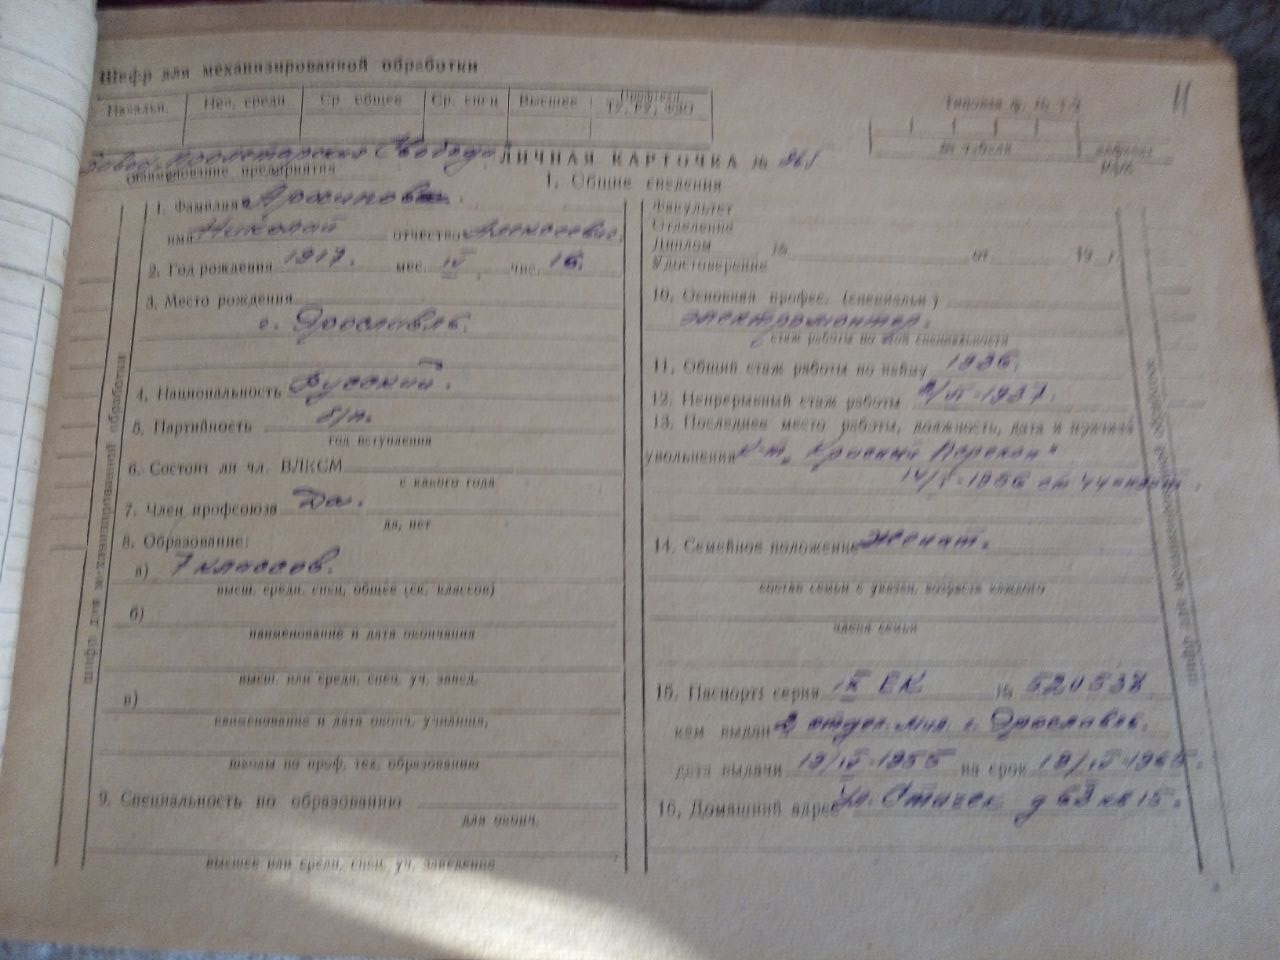 Шифр для механизированной обработки
Начальн. Неп. средн. Ср. общее Ср. спец. Высшее Профтехн. ТУ, РУ, ФЗО
Типовая ф. № Т-2
№ табеля
Завод "Пролетарская Свобода" ЛИЧНАЯ КАРТОЧКА №
наименование предприятия
1. Общие сведения
1. Фамилия
имя Николай отчество Алексеевич.
2. Год рождения 1917. мес. IV чис. 16.
3. Место рождения
г. Ярославль.
4. Национальность Русский.
5. Партийность б/п.
год вступления
6. Состоит ли чл. ВЛКСМ
с какого года
7. Член профсоюза Да.
да, нет
8. Образование:
а) 7 классов.
высш. средн. спец, общее (ск. классов)
б)
наименование и дата окончания
высш. или средн. спец. уч. завед.
в)
наименование и дата оконч. училища,
школы по проф. тех. образованию
9. Специальность по образованию
для оконч.
высшее или средн. спец. уч. заведения
Факультет
Отделение
Диплом № от 19 г.
Удостоверение
10. Основная профес. (специальн.)
электромонтер.
стаж работы по этой специальности
11. Общий стаж работы по найму 1936.
12. Непрерывный стаж работы
13. Последнее место работы, должность, дата и причина
увольнения к-т. "Красный Перекоп"
14. Семейное положение женат.
состав семьи с указан. возраста каждого
члена семьи
15. Паспорт: серия ЕК №
кем выдан 2 отдел. мил. г. Ярославль.
дата выдачи 19/IV-1955 на срок 19/IV-1965.
16. Домашний адрес ул. Стачек д 63 кв 15.
шифр для механизированной обработки
шифр для механизированной обработки